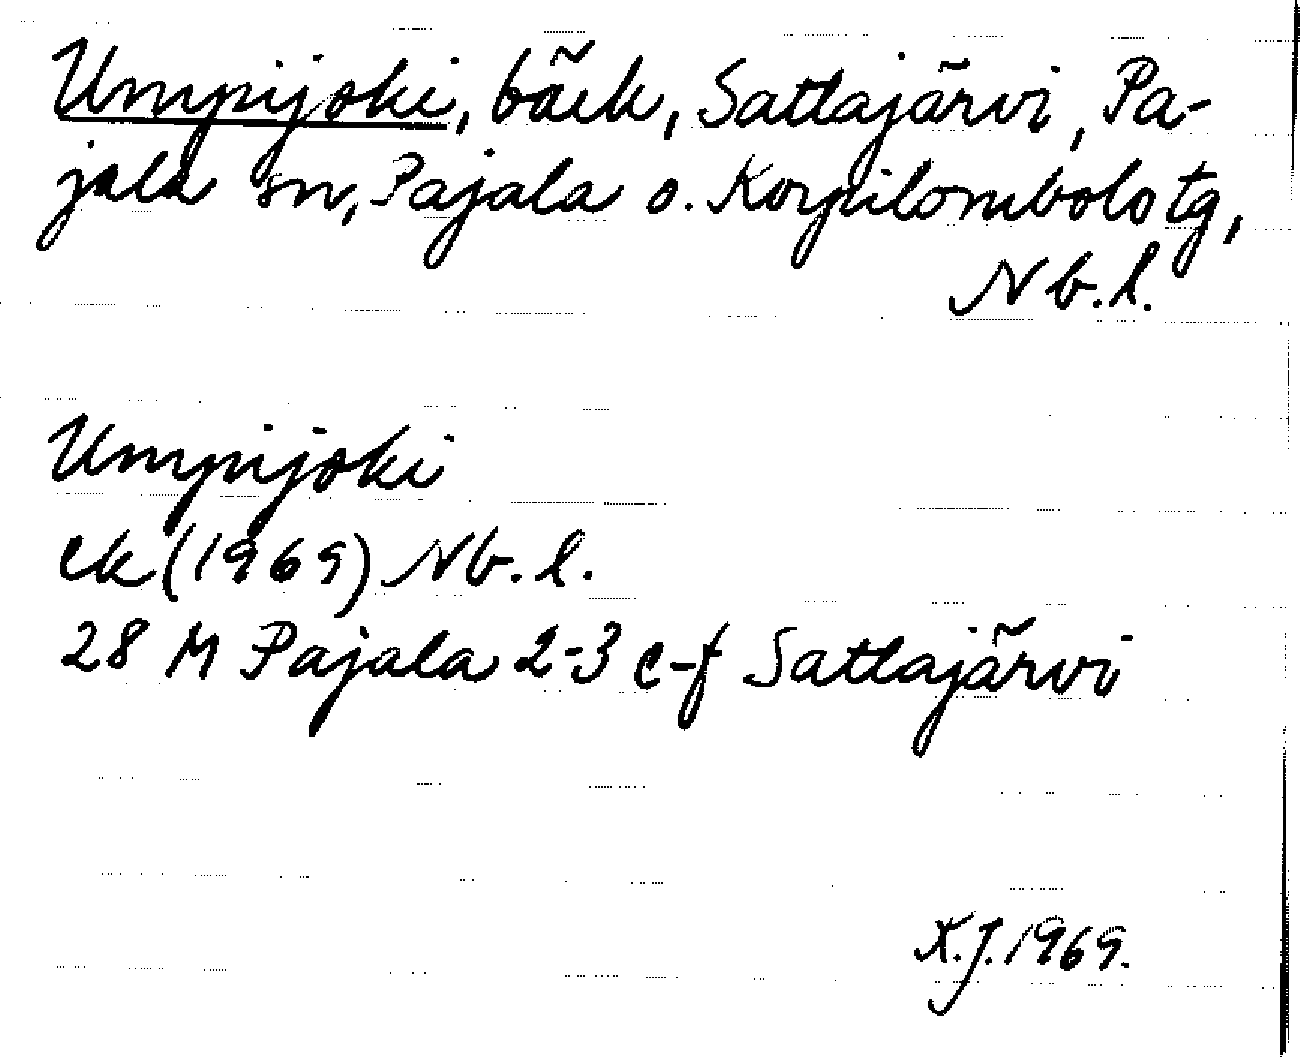 Umpijoki, bäck, Sattajärvi, Pa-
jala sn, Pajala o. Korpilombolo tg,
Nb. l.
Umpijoki
ek (1969) Nb. l.
28 M Pajala 2-3 c-f Sattajärvi
K.J. 1969.